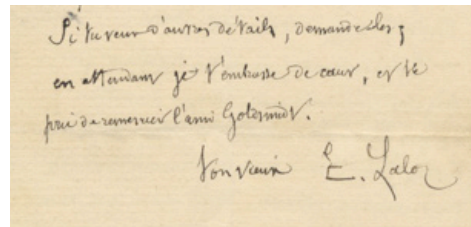 Si tu veux d'autres détails, demande les ;
en attendant je t'embrasse de cœur, et te
prie de remercier l'ami Goldsmidt.
Ton vieux E. Lalo